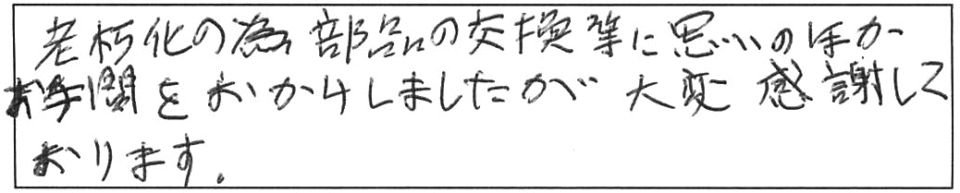 老朽化の為部品の交換等に思いのほか
お手間をおかけしましたが大変感謝して
おります。